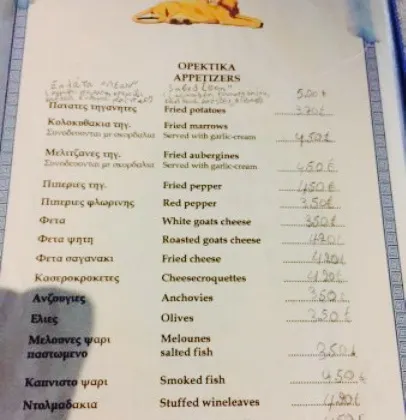 ΟΡΕΚΤΙΚΑ
APPETIZERS
Σαλάτα "ΛΕΩΝ" Salad 5,00 €
Πατατες τηγανητες Fried potatoes 3,20 €
Κολοκυθακια τηγ. Fried marrows
Συνοδευονται με σκορδαλια Served with garlic-cream 4,50 €
Μελιτζανες τηγ. Fried aubergines
Συνοδευονται με σκορδαλια Served with garlic-cream 4,50 €
Πιπεριες τηγ. Fried pepper 4,50 €
Πιπεριες φλωρινης Red pepper 3,50 €
Φετα White goats cheese 3,50 €
Φετα ψητη Roasted goats cheese 4,20 €
Φετα σαγανακι Fried cheese 4,20 €
Κασεροκροκετες Cheesecroquettes 4,20 €
Ανζουγιες Anchovies 3,50 €
Ελιες Olives 3,50 €
Μελουνες ψαρι Melounes
παστωμενο salted fish 3,50 €
Καπνιστο ψαρι Smoked fish 4,50 €
Ντολμαδακια Stuffed wineleaves 4,20 €